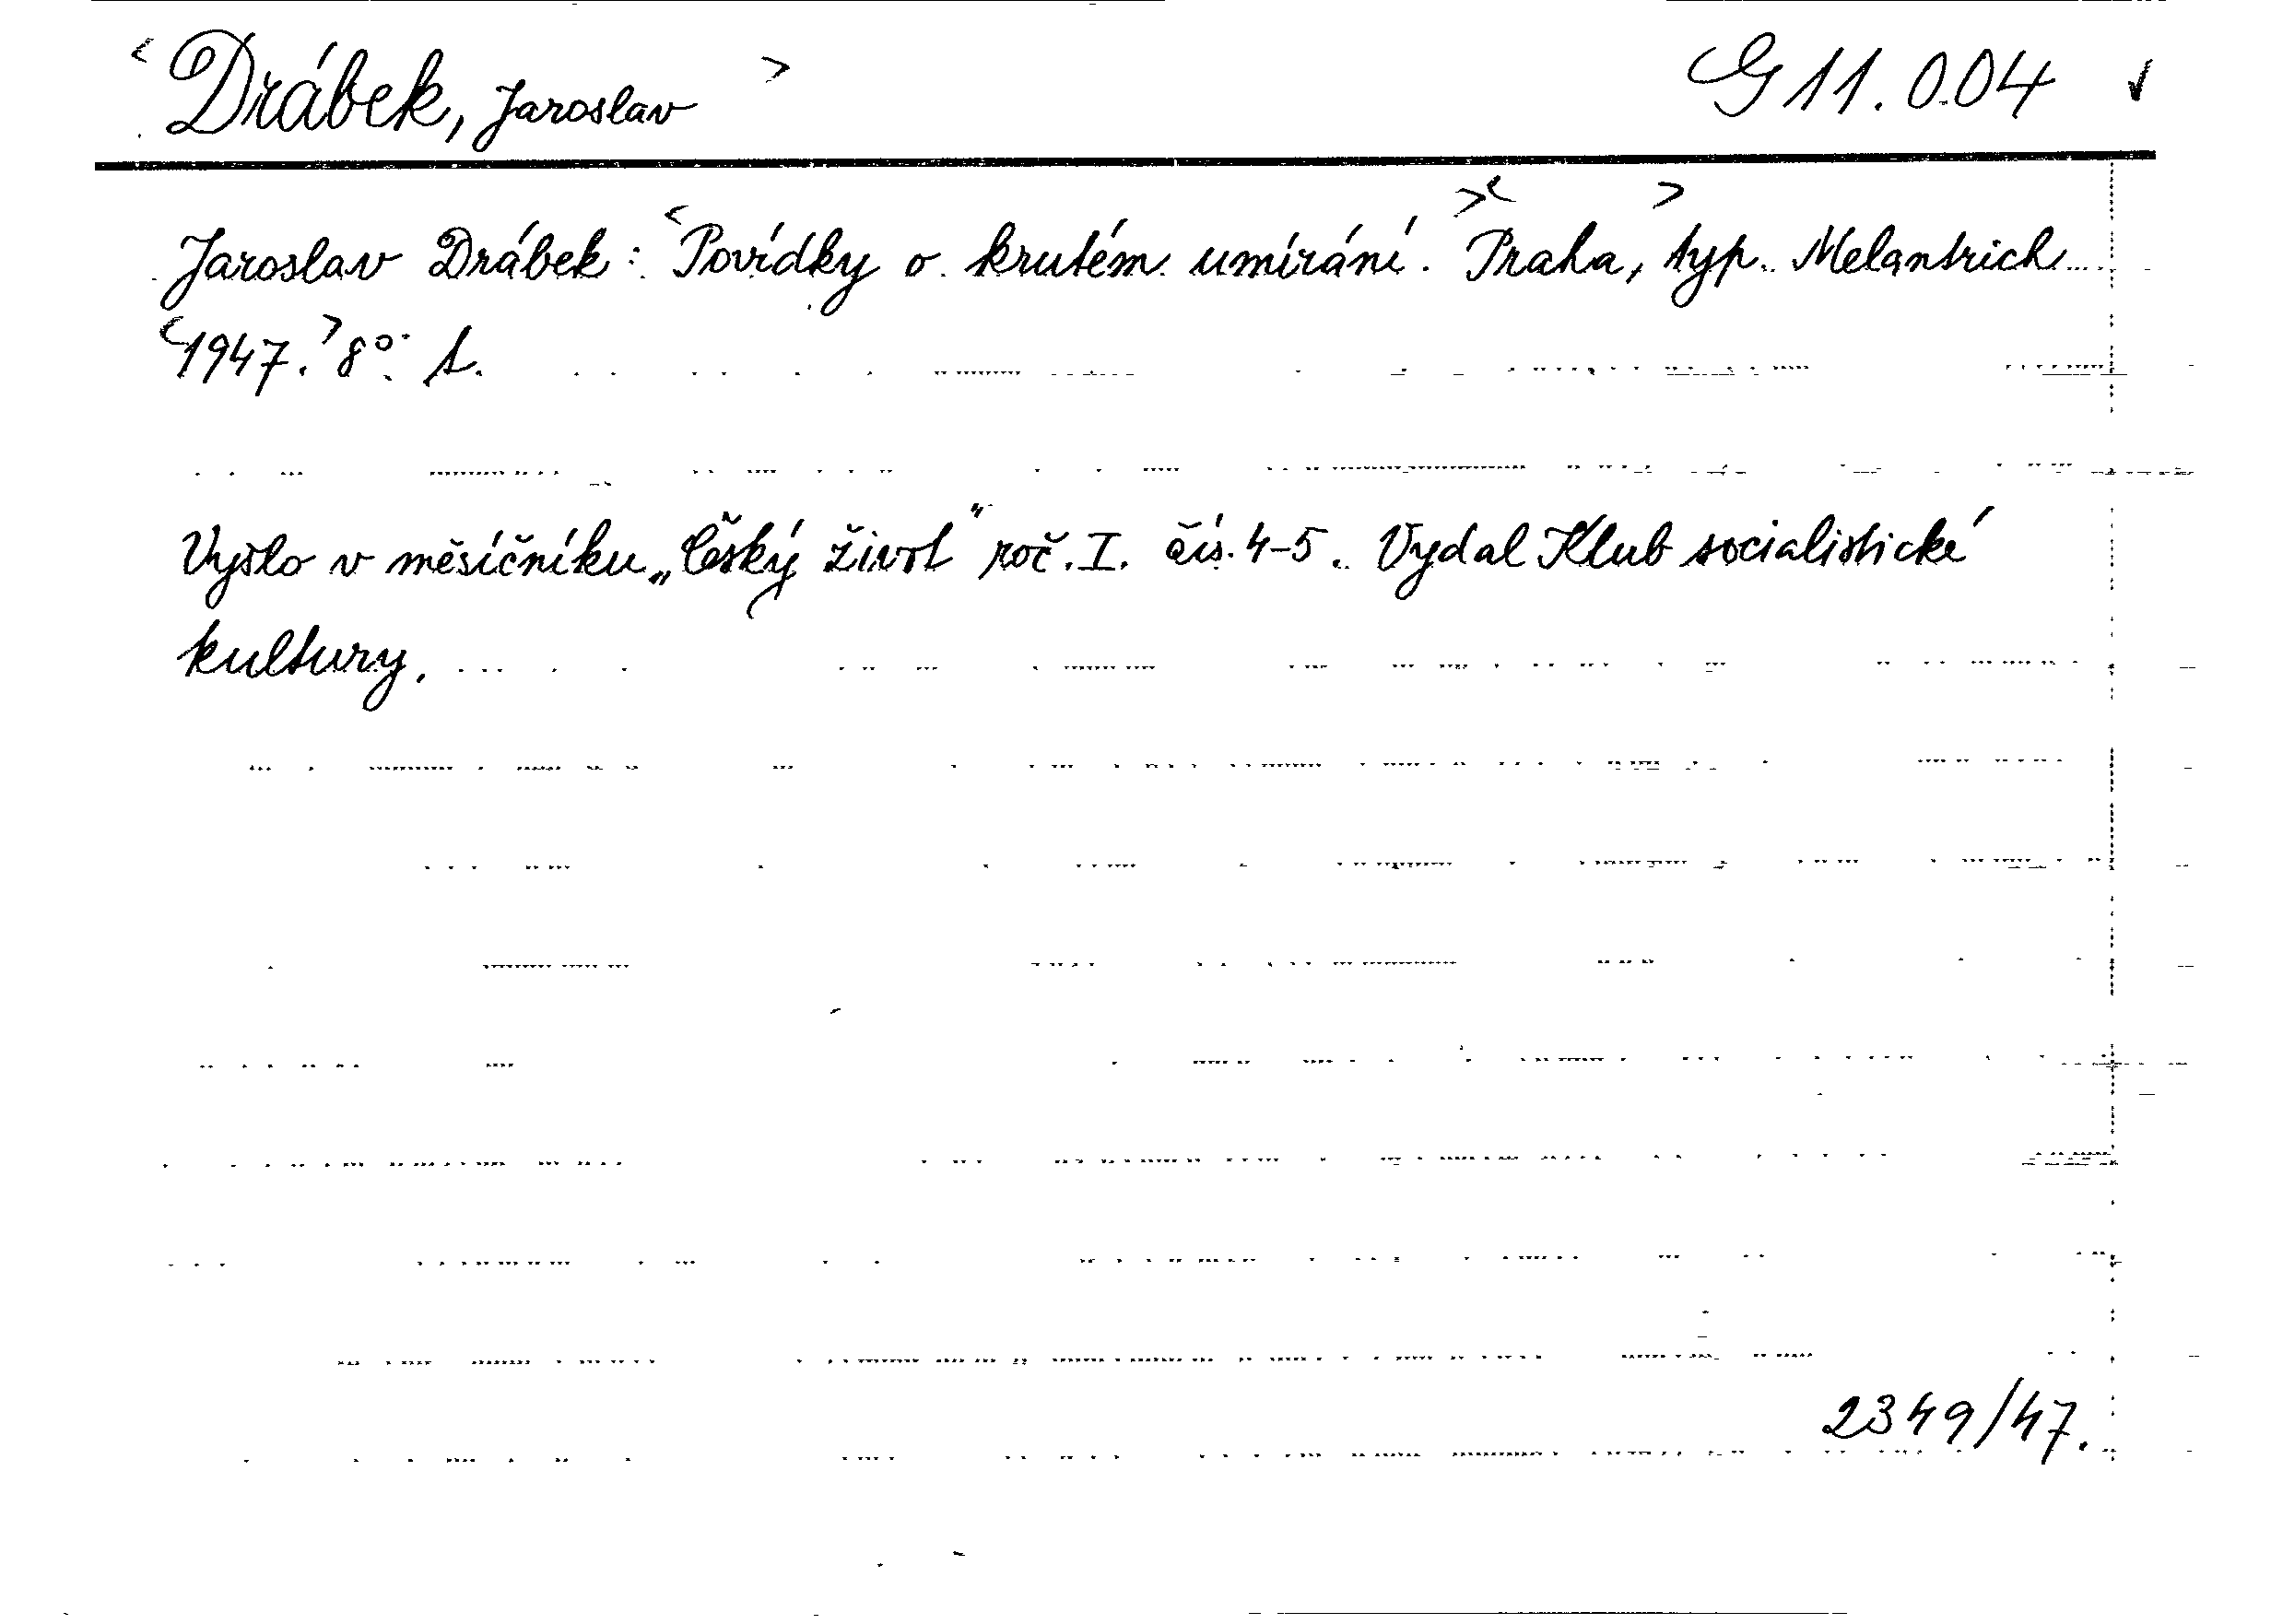 < Drábek, Jaroslav > G 11.004 ✓
Jaroslav Drábek: <Povídky o krutém umírání. ><Praha, > typ. Melantrich
<1947.> 8° s.
Vyšlo v měsíčníku „Český život" roč. I. čís. 4-5. Vydal Klub socialistické
kultury.
2349/47.